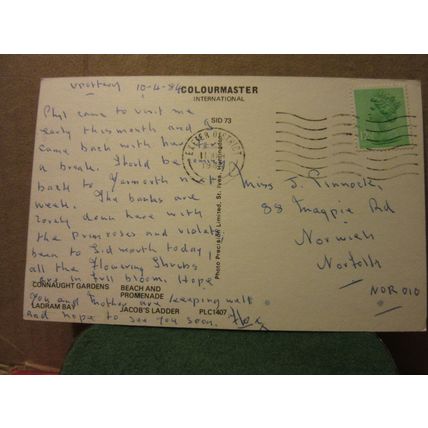 10-4-84
COLOURMASTER
INTERNATIONAL
SID 73
Phyl came to visit me
early this month and I
came back with her for
a break. Should be
back to Yarmouth next
week. The banks are
lovely down here with
the Primroses and violets
been to Sidmouth today,
all the Flowering Shrubs
are in full bloom. Hope
you and Mother are keeping well
and hope to see you soon.
CONNAUGHT GARDENS
BEACH AND
PROMENADE
LADRAM BAY
JACOB'S LADDER
PLC1407
Photo Precision Limited, St. Ives, Huntingdon
EXETER DISTRICT
Miss J. Pinnock
88 Magpie Rd
Norwich
Norfolk